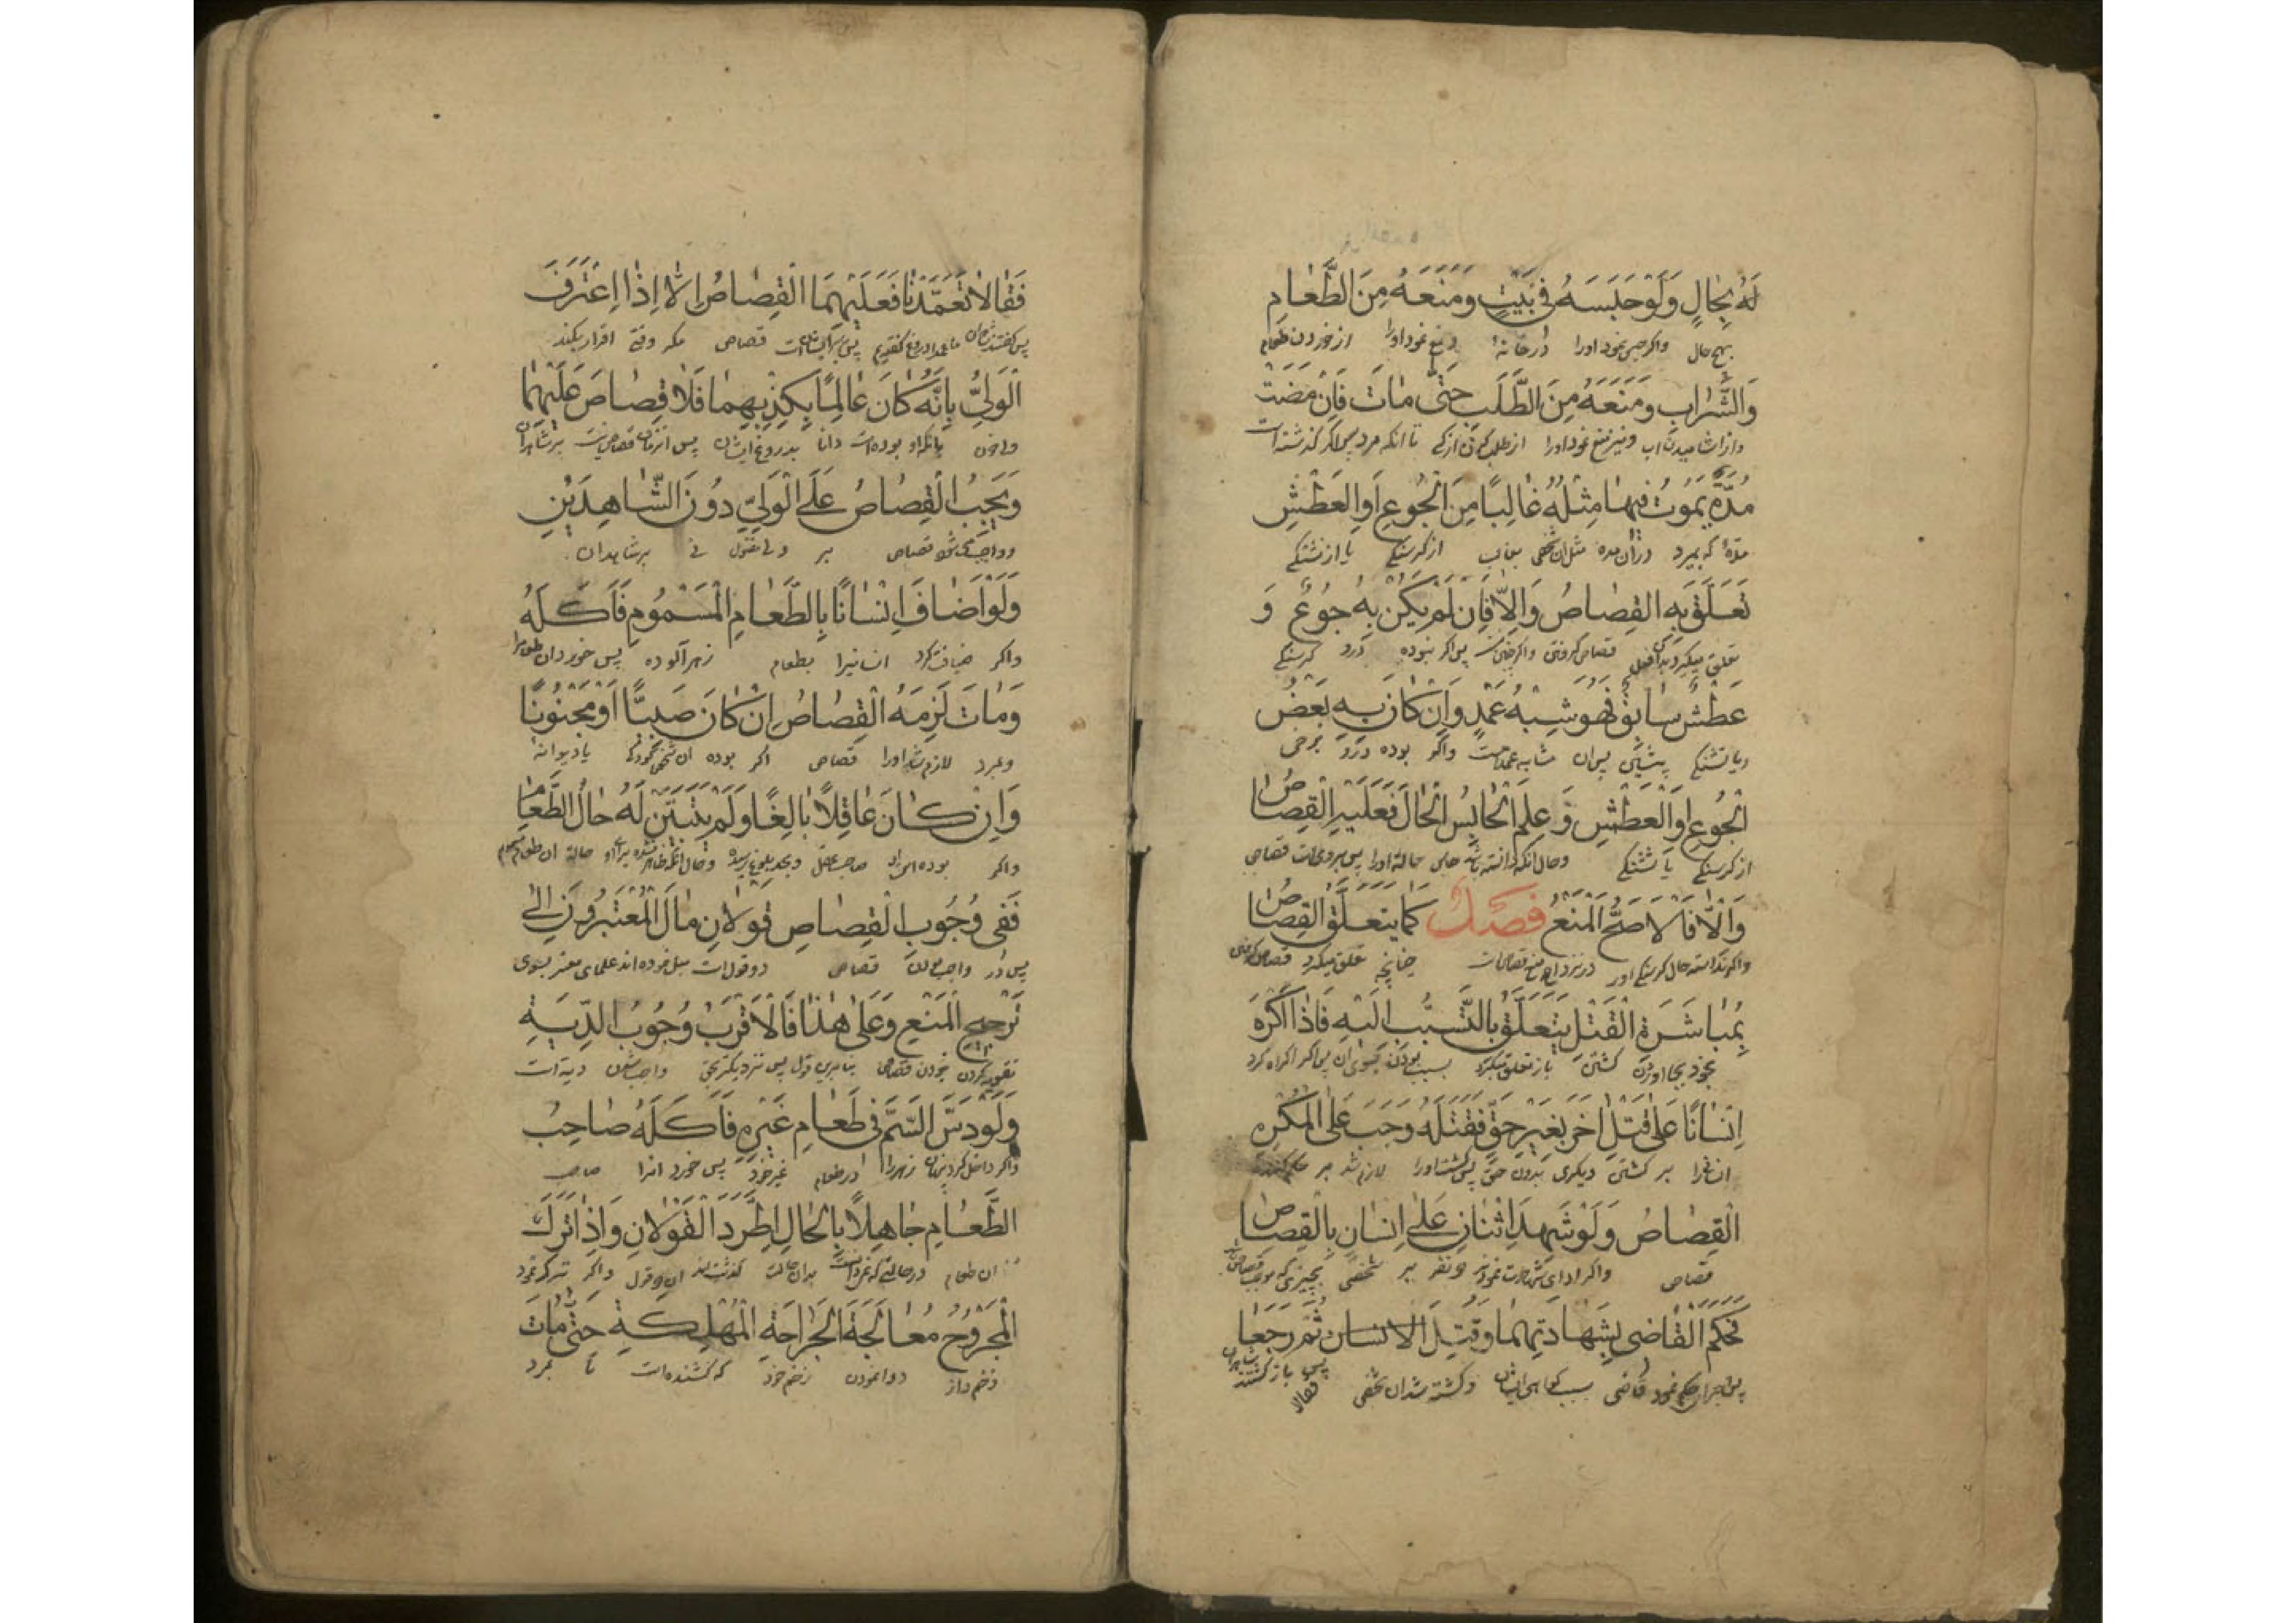 لَهُ بِحَالٍ وَلَوْ حَبَسَهُ فِي بَيْتٍ وَمَنَعَهُ مِنَ الطَّعَامِ
بهیچ حال واکر حبس نمود اورا در خانهٔ و منع نمود اورا از خوردن طعام
وَالشَّرَابِ وَمَنَعَهُ مِنَ الطَّلَبِ حَتَّى مَاتَ فَإِنْ مَضَتْ
و از اشامیدن اب و نیز منع نمود اورا از طلب کردن تا انکه مرد پس اکر کذشته است
مُدَّةٌ يَمُوتُ فِيهَا مِثْلُهُ غَالِبًا مِنَ الْجُوعِ أَوِ الْعَطَشِ
مدهٔ که بمیرد در ان مده مثل ان شخص از کرسنکی یا از تشنکی
تَعَلَّقَ بِهِ الْقِصَاصُ وَإِلَّا فَإِنْ لَمْ يَكُنْ بِهِ جُوعٌ وَ
تعلق میکیرد قصاص پس اکر نبوده درو کرسنکی
عَطَشٌ سَابِقٌ فَهُوَ شِبْهُ عَمْدٍ وَإِنْ كَانَ بِهِ بَعْضُ
و یا تشنکی پس ان مشابه عمد است واکر بوده درو برخی
الْجُوعِ أَوِ الْعَطَشِ وَعَلِمَ الْحَابِسُ الْحَالَ فَعَلَيْهِ الْقِصَاصُ
از کرسنکی یا تشنکی و حال انکه دانسته باشد حالة اورا پس بر وی است قصاص
وَإِلَّا فَالْأَصَحُّ الْمَنْعُ فَصْلٌ كَمَا يَتَعَلَّقُ الْقِصَاصُ
واکر ندانسته حال کرسنکی اورا منع قصاص است چنانچه تعلق میکیرد قصاص
بِمُبَاشَرَةِ الْقَتْلِ يَتَعَلَّقُ بِالتَّسَبُّبِ إِلَيْهِ فَإِذَا أَكْرَهَ
بخود بجا اوردن کشتن باز تعلق میکیرد بسبب بودن بسوی ان پس اکر اکراه کرد
إِنْسَانًا عَلَى قَتْلِ آخَرَ بِغَيْرِ حَقٍّ فَقَتَلَهُ وَجَبَ عَلَى الْمُكْرِهِ
انسانرا بر کشتن دیکری بدون حق پس کشت اورا لازم شد بر
الْقِصَاصُ وَلَوْ شَهِدَ اثْنَانِ عَلَى إِنْسَانٍ بِالْقِصَاصِ
قصاص واکر ادای شهادت نمودند دو نفر بر شخصی بچیزی که موجب قصاص
فَحَكَمَ الْقَاضِي بِشَهَادَتِهِمَا وَقُتِلَ الْإِنْسَانُ ثُمَّ رَجَعَا
حکم نمود قاضی بسبب کواهی ایشان و کشته شد ان شخص پس باز کشتند شاهدان
فقالا
فَقَالَا تَعَمَّدْنَا فَعَلَيْهِمَا الْقِصَاصُ إِلَّا إِذَا اعْتَرَفَ
پس کفتند ما عمدا دروغ کفتیم پس بر ایشان است قصاص مکر وقتی اقرار بکند
الْوَلِيُّ بِأَنَّهُ كَانَ عَالِمًا بِكِذْبِهِمَا فَلَا قِصَاصَ عَلَيْهِمَا
بانکه او بوده است دانا بدروغ ایشان پس قصاص نیست بر شاهدان
وَيَجِبُ الْقِصَاصُ عَلَى الْوَلِيِّ دُونَ الشَّاهِدَيْنِ
و واجب میشود قصاص بر ولی مقتول نی بر شاهدان
وَلَوْ أَضَافَ إِنْسَانًا بِالطَّعَامِ الْمَسْمُومِ فَأَكَلَهُ
واکر ضیافت کرد انسانیرا بطعام زهر آلوده پس خورد ان طعام را
وَمَاتَ لَزِمَهُ الْقِصَاصُ إِنْ كَانَ صَبِيًّا أَوْ مَجْنُونًا
و بمرد لازم شد اورا قصاص اکر بوده ان شخص کودکی یا دیوانهٔ
وَإِنْ كَانَ عَاقِلًا بَالِغًا وَلَمْ يَتَبَيَّنْ لَهُ حَالُ الطَّعَامِ
واکر بوده صاحب عقل و بحد بلوغ رسیده و حال انکه ظاهر نشده برای او حالة ان طعام
فَفِي وُجُوبِ الْقِصَاصِ قَوْلَانِ مَالَ الْمُعْتَبَرُونَ إِلَى
پس در واجب قصاص دو قول است میل نموده اند علمای معتبر بسوی
تَرْجِيحِ الْمَنْعِ وَعَلَى هٰذَا فَالْأَقْرَبُ وُجُوبُ الدِّيَةِ
قصاص بنا برین قول پس نزدیکتر بحق واجب شدن دیة است
وَلَوْ دَسَّ السَّمَّ فِي طَعَامِ غَيْرِهِ فَأَكَلَهُ صَاحِبُ
واکر داخل کرد زهر را در طعام غیر خود پس خورد انرا صاحب
الطَّعَامِ جَاهِلًا بِالْحَالِ اطَّرَدَ الْقَوْلَانِ وَإِذَا تَرَكَ
ان طعام در حالتی که بدان حالت ان دو قول واکر ترک نمود
الْمَجْرُوحُ مُعَالَجَةَ الْجِرَاحَةِ الْمُهْلِكَةِ حَتَّى مَاتَ
زخم دار دوا نمودن زخم خود که کشنده است تا بمرد